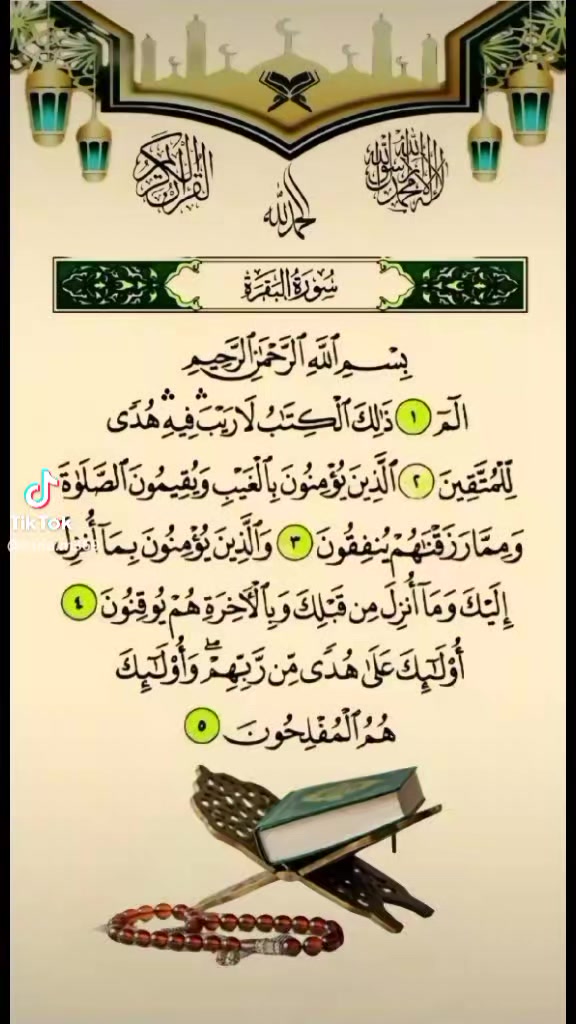 القرآن الكريم
لا إله إلا الله محمد رسول الله
الحمد لله
سُورَةُ الْبَقَرَةِ
بِسْمِ ٱللَّهِ ٱلرَّحْمَٰنِ ٱلرَّحِيمِ
الٓمٓ ١ ذَٰلِكَ ٱلْكِتَٰبُ لَا رَيْبَ ۛ فِيهِ ۛ هُدًى
لِّلْمُتَّقِينَ ٢ ٱلَّذِينَ يُؤْمِنُونَ بِٱلْغَيْبِ وَيُقِيمُونَ ٱلصَّلَوٰةَ
وَمِمَّا رَزَقْنَٰهُمْ يُنفِقُونَ ٣ وَٱلَّذِينَ يُؤْمِنُونَ بِمَآ أُنزِلَ
إِلَيْكَ وَمَآ أُنزِلَ مِن قَبْلِكَ وَبِٱلْءَاخِرَةِ هُمْ يُوقِنُونَ ٤
أُو۟لَٰٓئِكَ عَلَىٰ هُدًى مِّن رَّبِّهِمْ ۖ وَأُو۟لَٰٓئِكَ
هُمُ ٱلْمُفْلِحُونَ ٥
TikTok